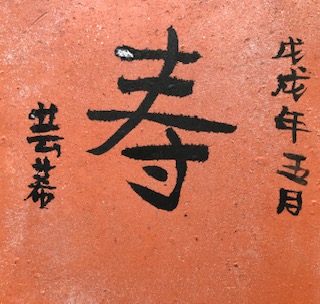 戊戌年五月
寿
芸慕